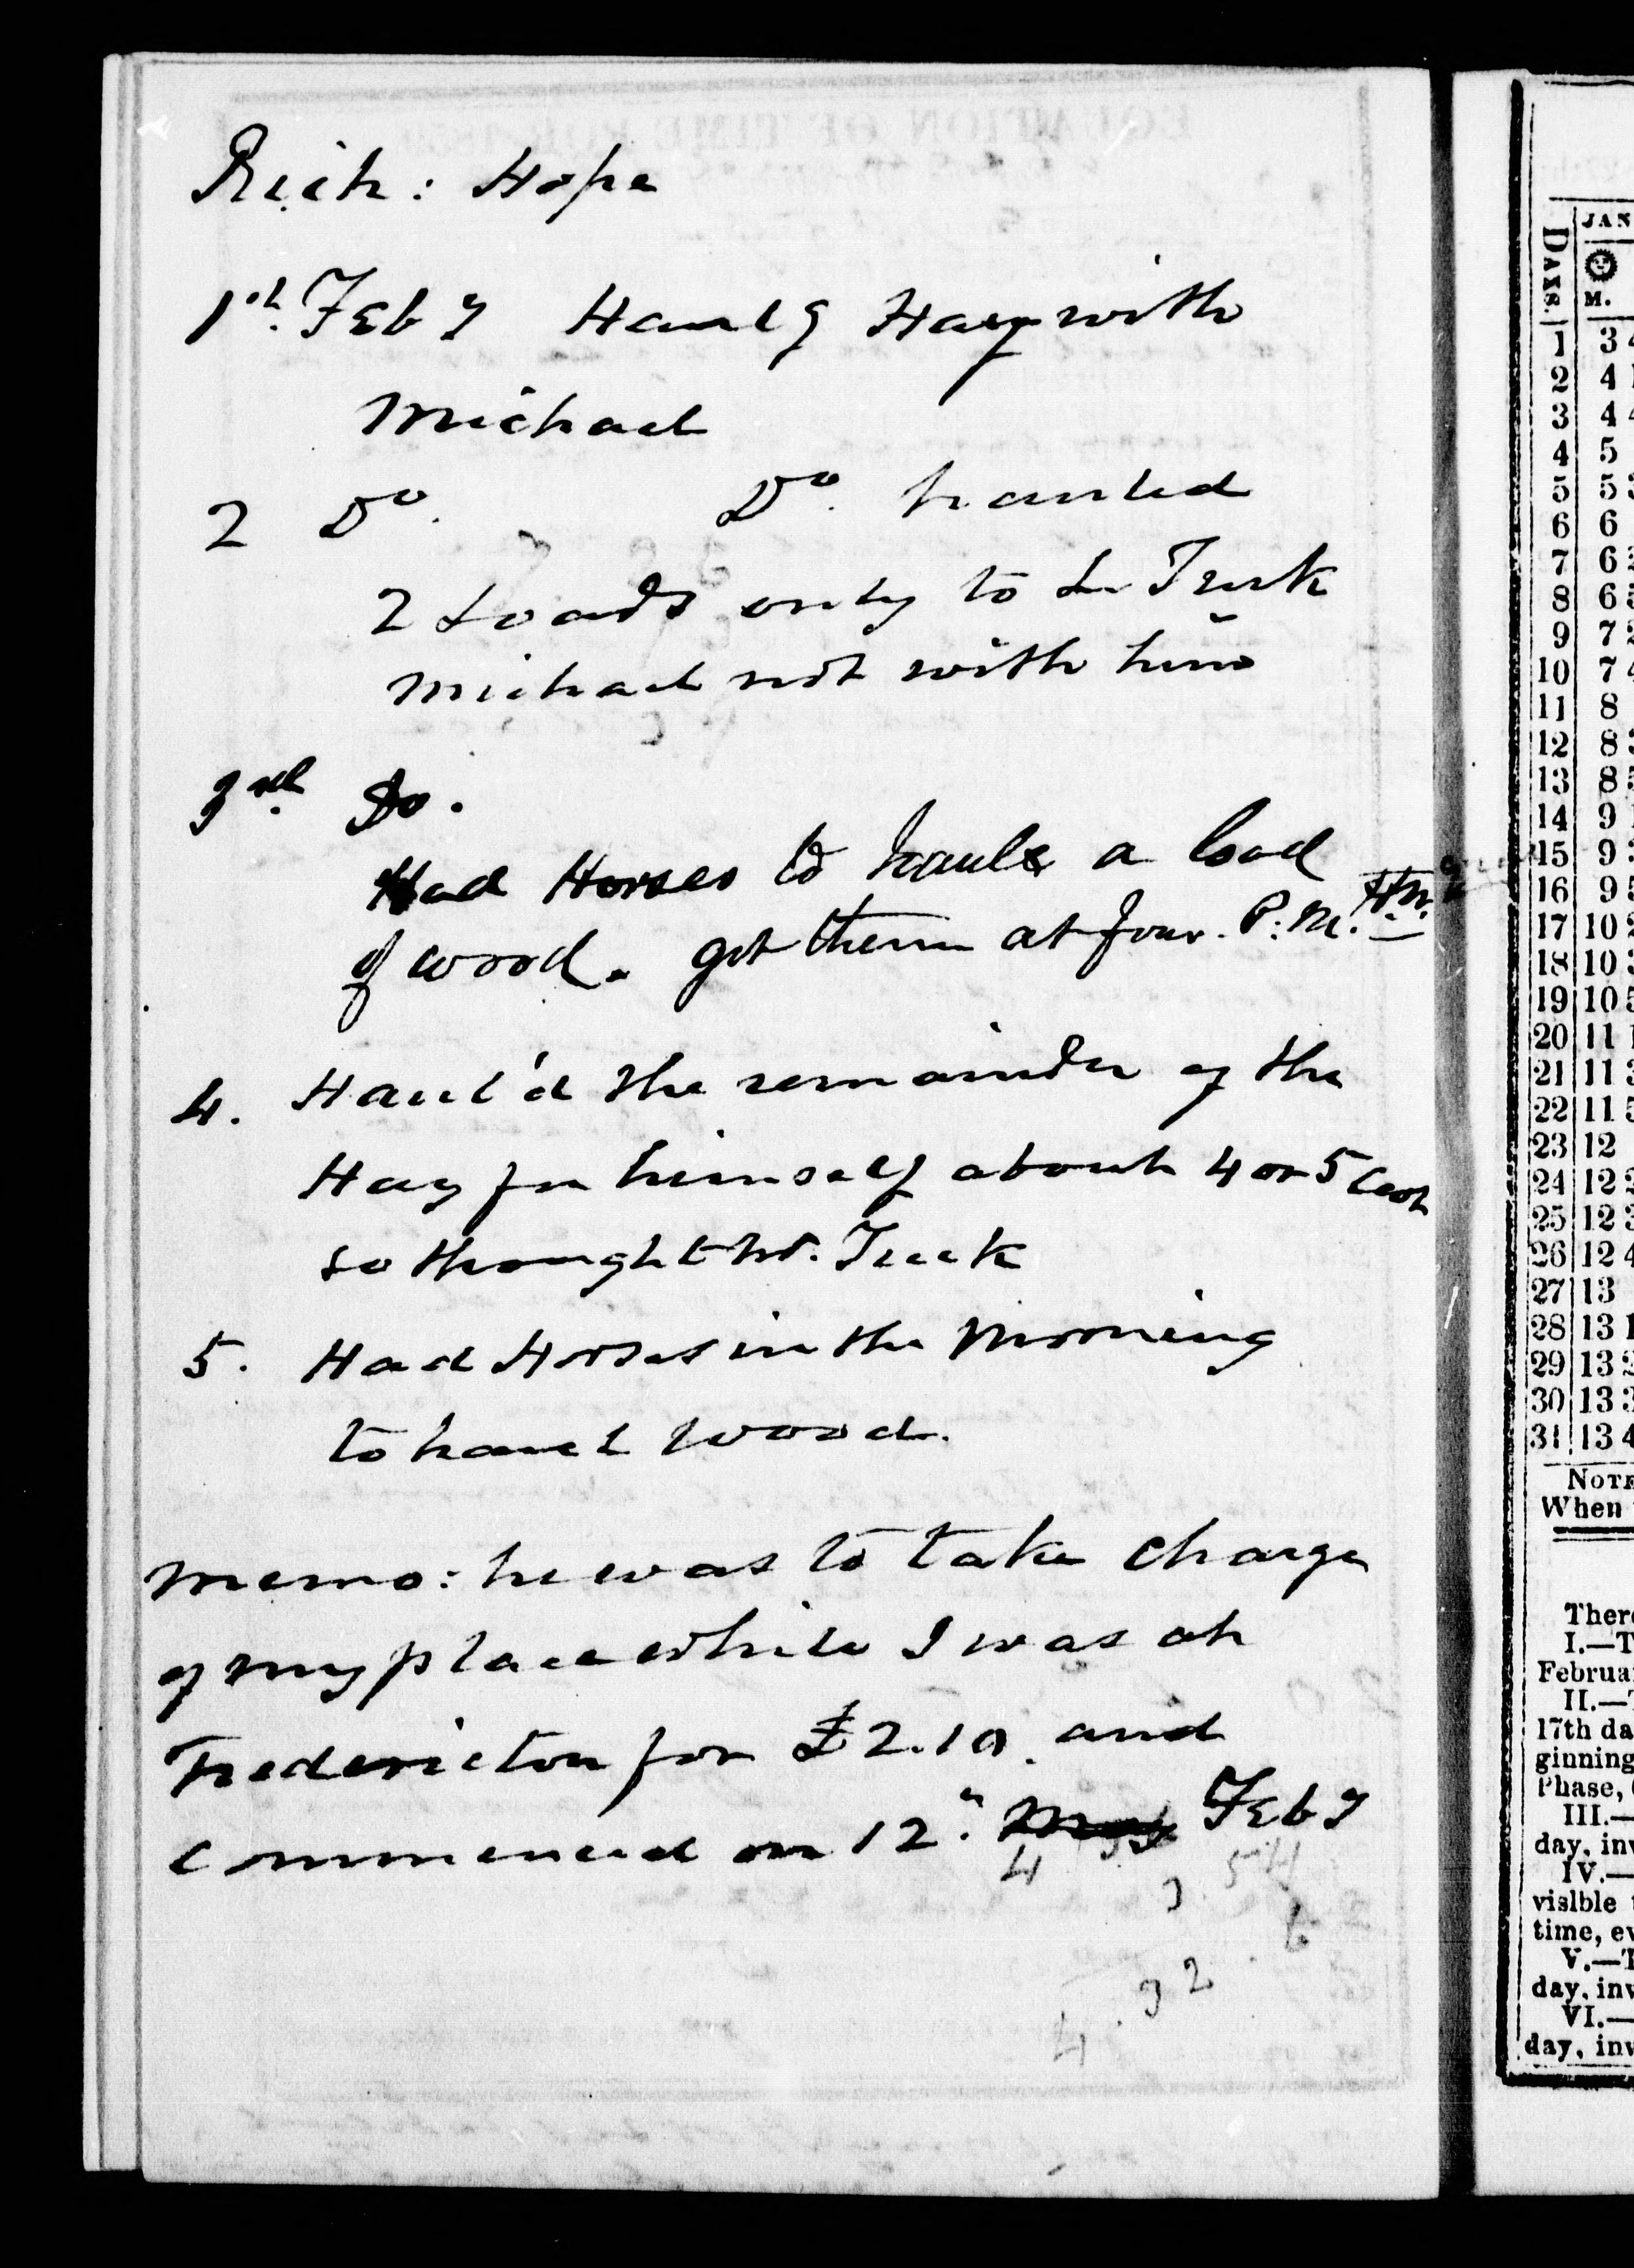 Rich: Hope
1st. Feby Haulg Hay with
Michael
2 Do. Do. hauled
2 Loads only to
Michael not with him
3rd. Do.
Had Horses to haul a load
of wood. got them at four. P.M.
4. Haul'd the remainder of the
Hay for himself about 4 or 5 Cwt
so thought
5. Had Horses in the Morning
to haul wood.
Memo: he was to take charge
of my place while I was at
Fredericton for £2.10. and
commenced on 12. May Feby
4
3 5 4
9 2 6
4
DAYS.
JAN
M.
1 3 4
2 4 1
3 4 4
4 5
5 5 3
6 6
7 6 2
8 6 5
9 7 2
10 7 4
11 8
12 8 3
13 8 5
14 9 1
15 9 3
16 9 5
17 10 2
18 10 3
19 10 5
20 11 1
21 11 3
22 11 5
23 12
24 12 2
25 12 3
26 12 4
27 13
28 13 1
29 13 2
30 13 3
31 13 4
NOTE
When
There
I.—T
Februa
II.—
17th da
ginning
Phase,
III.—
day, inv
IV.—
visible
time, ev
V.—T
day, inv
VI.—
day, inv